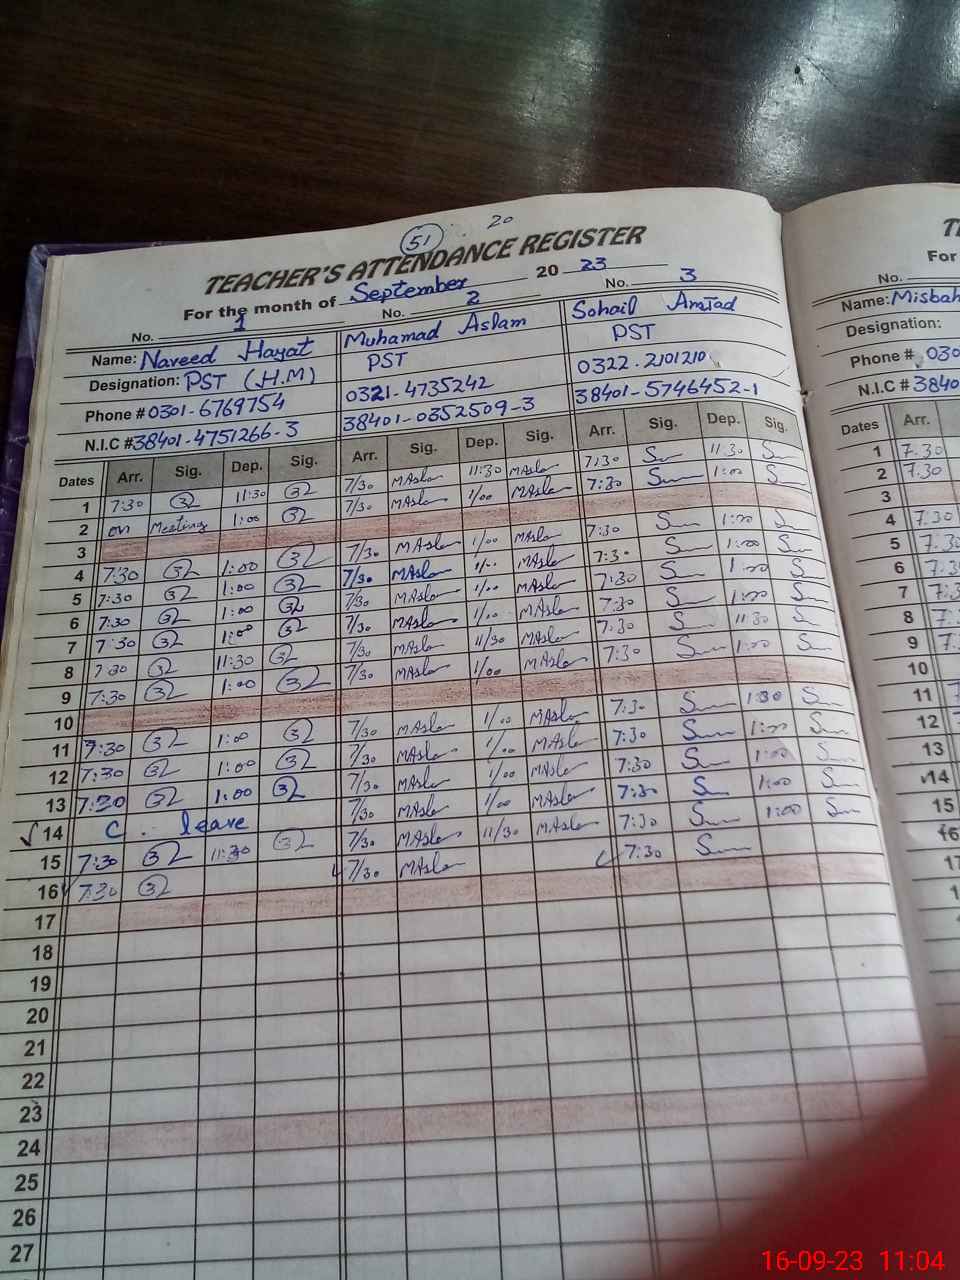 51 20
TEACHER'S ATTENDANCE REGISTER
For the month of September 20 23
No. 1 No. 2 No. 3
Name: Naveed Hayat Muhamad Aslam Sohail Amjad
Designation: PST (H.M) PST PST
Phone # 0301-6769754 0321-4735242 0322.2101210
N.I.C # 38401-4751266-3 38401-0352509-3 38401-5746452-1
Dates Arr. Sig. Dep. Sig. Arr. Sig. Dep. Sig. Arr. Sig. Dep. Sig.
1 7:30 11:30 7/30 MAslam 11:30 MAslam 7:30 11:30
2 on Meeting 1:00 7/30 MAslam 1/00 MAslam 7:30 1:00
3
4 7:30 1:00 7/30 MAslam 1/00 MAslam 7:30 1:00
5 7:30 1:00 7/30 MAslam 1/00 MAslam 7:30 1:00
6 7:30 1:00 7/30 MAslam 1/00 MAslam 7:30 1:00
7 7:30 1:00 7/30 MAslam 1/00 MAslam 7:30 1:00
8 7:30 11:30 7/30 MAslam 11/30 MAslam 7:30 11:30
9 7:30 1:00 7/30 MAslam 1/00 MAslam 7:30 1:00
10
11 7:30 1:00 7/30 MAslam 1/00 MAslam 7:30 1:30
12 7:30 1:00 7/30 MAslam 1/00 MAslam 7:30 1:00
13 7:30 1:00 7/30 MAslam 1/00 MAslam 7:30 1:00
14 C. leave 7/30 MAslam 1/00 MAslam 7:30 1:00
15 7:30 11:30 7/30 MAslam 11/30 MAslam 7:30 1:00
16 7:30 7/30 MAslam 7:30
17
18
19
20
21
22
23
24
25
26
27
For
No.
Name: Misbah
Designation:
Phone # 030
N.I.C # 3840
Dates Arr.
1 7.30
2 7.30
3
4 7.30
5 7.30
6
7
8
9
10
11
12
13
14
15
16
17
16-09-23 11:04